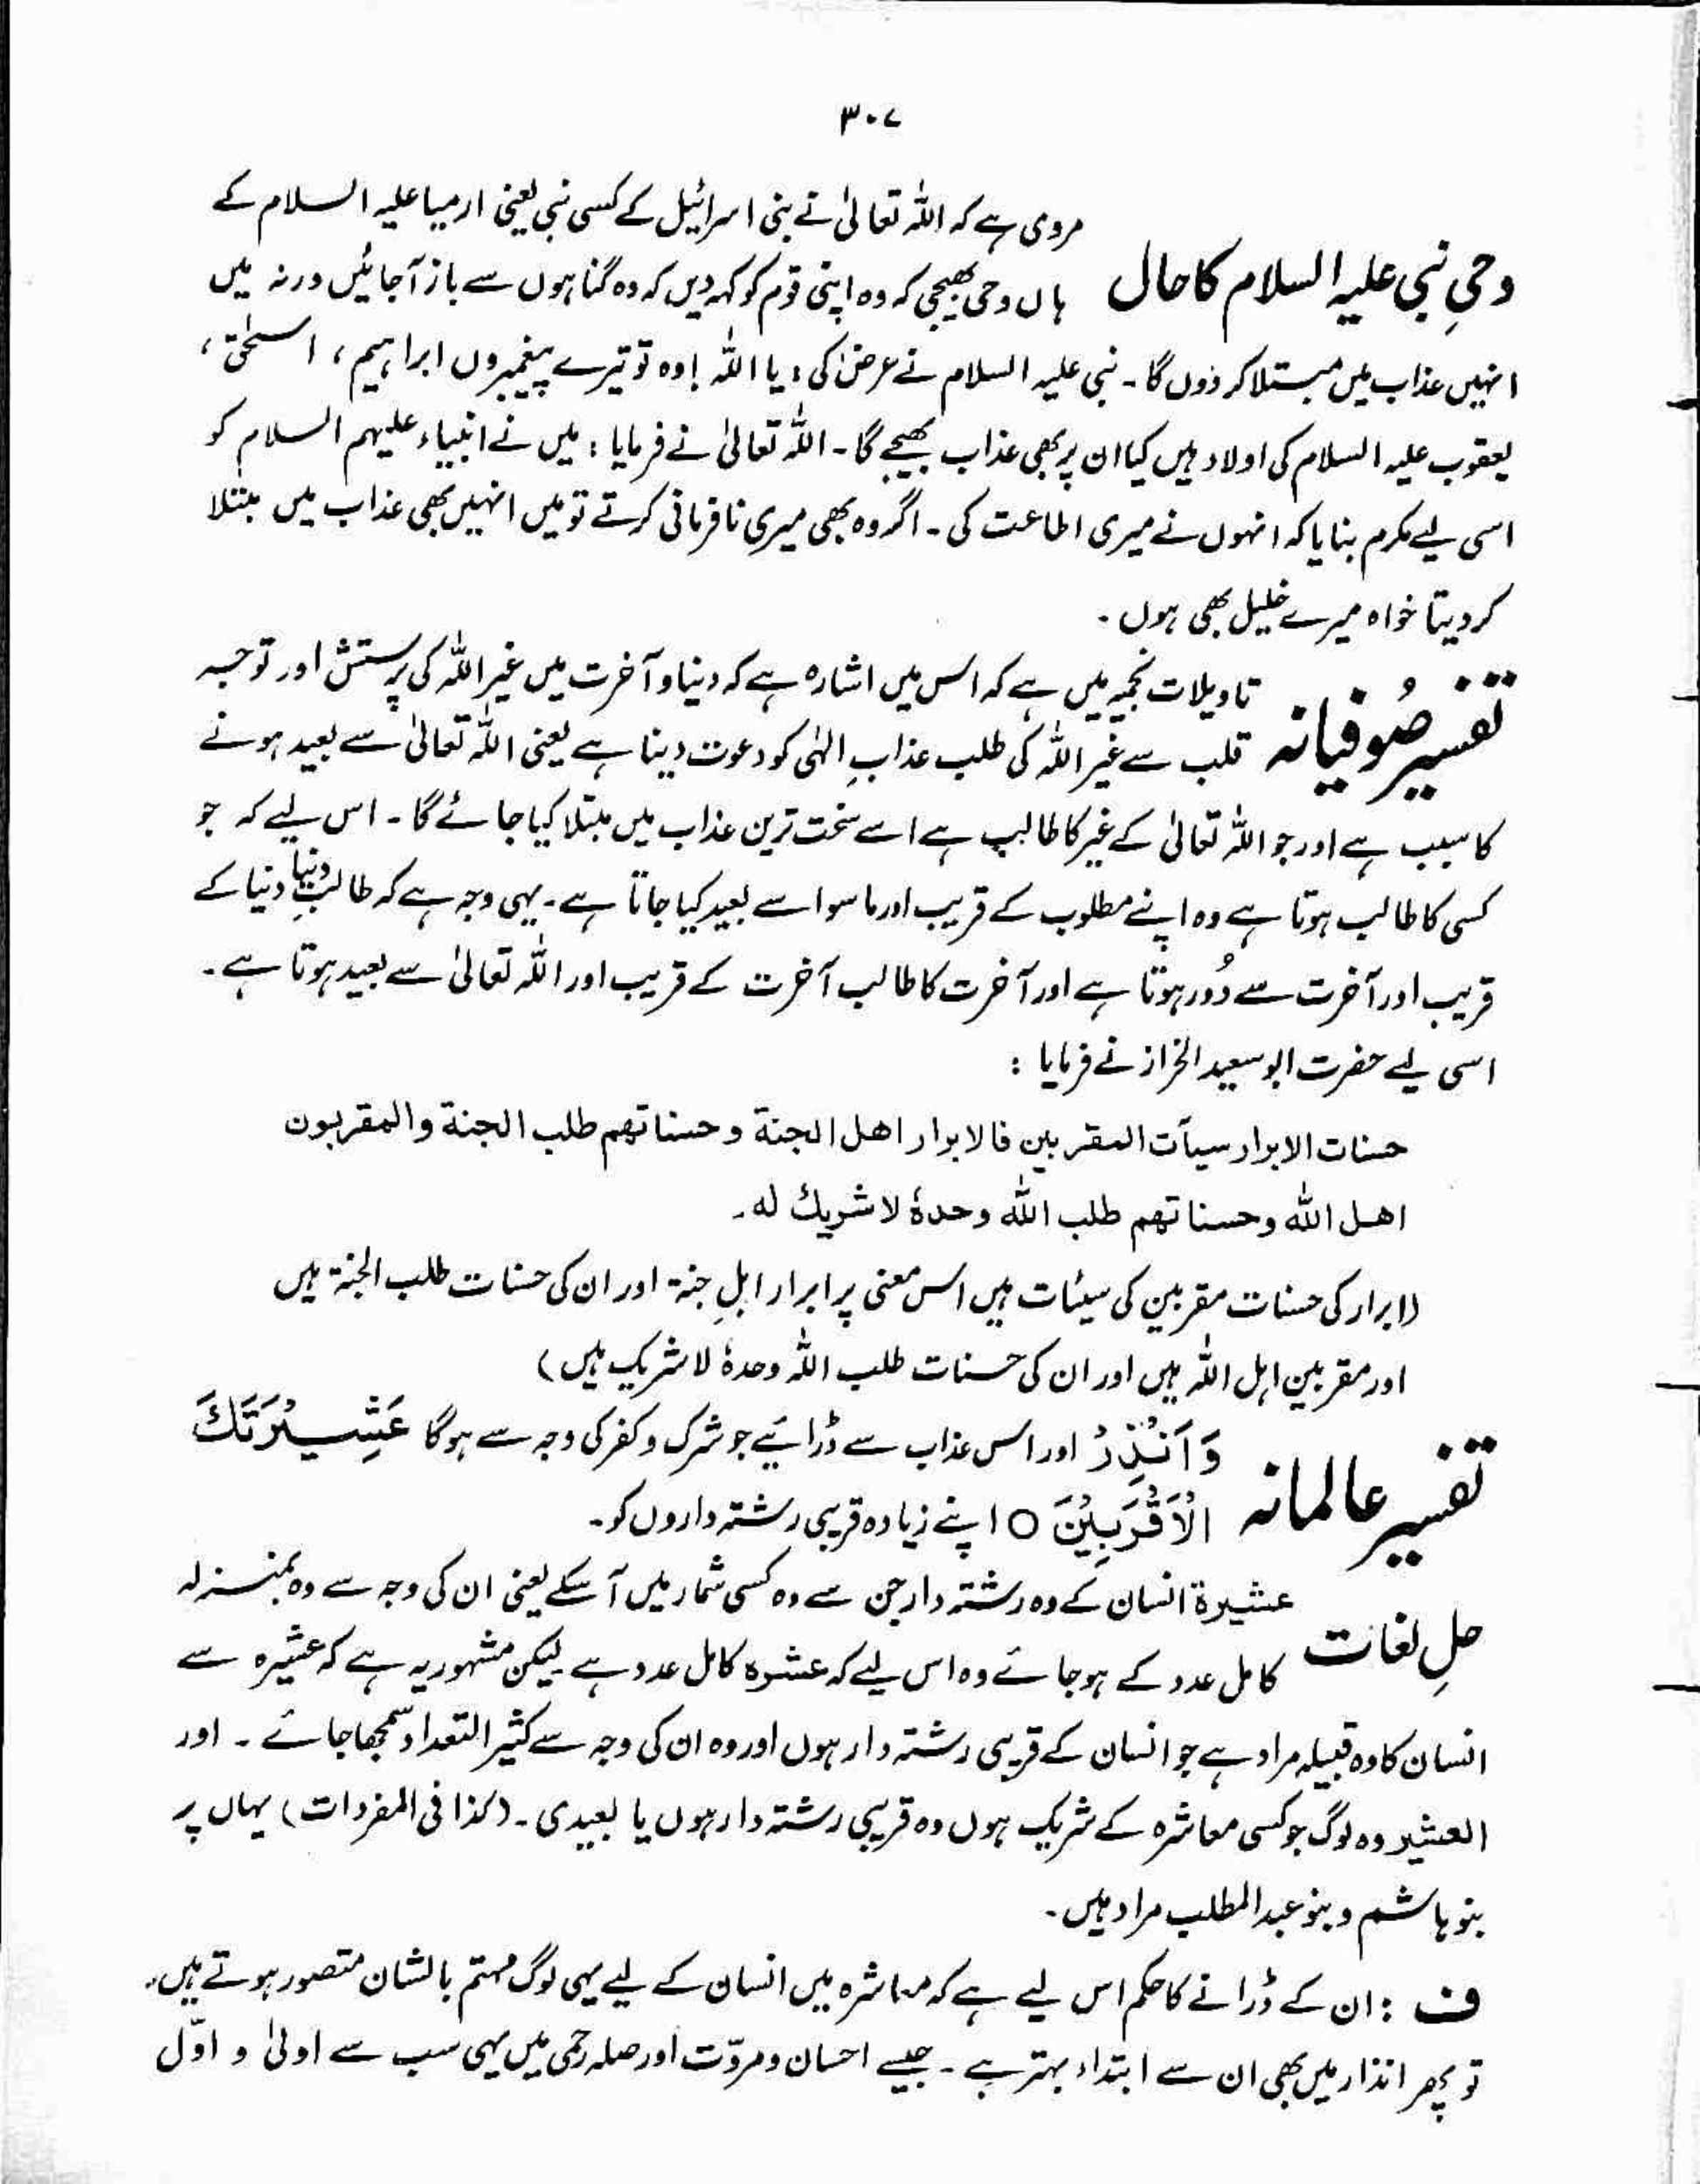 ۳۰۷
مروی ہے کہ اللہ تعالیٰ نے بنی اسرائیل کے کسی نبی یعنی ارمیا علیہ السلام کے
وحیِ نبی علیہ السلام کا حال ہاں وحی بھیجی کہ وہ اپنی قوم کو کہہ دیں کہ وہ گناہوں سے باز آجائیں ورنہ میں
انہیں عذاب میں مبتلا کر دوں گا۔ نبی علیہ السلام نے عرض کی : یا اللہ ! وہ تو تیرے پیغمبروں ابراہیم ، اسحٰق ،
یعقوب علیہ السلام کی اولاد ہیں کیا ان پر بھی عذاب بھیجے گا۔ اللہ تعالیٰ نے فرمایا : میں نے انبیاء علیہم السلام کو
اسی لیے مکرم بنایا کہ انہوں نے میری اطاعت کی۔ اگر وہ بھی میری نافرمانی کرتے تو میں انہیں بھی عذاب میں مبتلا
کر دیتا خواہ میرے خلیل بھی ہوں۔
تفسیر صُوفیانہ تاویلات نجمیہ میں ہے کہ اس میں اشارہ ہے کہ دنیا و آخرت میں غیر اللہ کی پرستش اور توجہ
قلب سے غیر اللہ کی طلب عذابِ الٰہی کو دعوت دینا ہے یعنی اللہ تعالیٰ سے بعید ہونے
کا سبب ہے اور جو اللہ تعالیٰ کے غیر کا طالب ہے اسے سخت ترین عذاب میں مبتلا کیا جائے گا۔ اس لیے کہ جو
کسی کا طالب ہوتا ہے وہ اپنے مطلوب کے قریب اور ماسوا سے بعید کیا جاتا ہے۔ یہی وجہ ہے کہ طالبِ دنیا دنیا کے
قریب اور آخرت سے دُور ہوتا ہے اور آخرت کا طالب آخرت کے قریب اور اللہ تعالیٰ سے بعید ہوتا ہے۔
اسی لیے حضرت ابو سعید الخراز نے فرمایا :
حسنات الابرار سیآت المقربین فالابرار اھل الجنة و حسناتھم طلب الجنة والمقربون
اھل اللہ وحسناتھم طلب اللہ وحدہٗ لا شریك له۔
(ابرار کی حسنات مقربین کی سیئات ہیں اس معنی پر ابرار اہلِ جنۃ اور ان کی حسنات طلب الجنۃ ہیں
اور مقربین اہل اللہ ہیں اور ان کی حسنات طلب اللہ وحدہٗ لا شریک ہیں)
تفسیر عالمانہ وَاَنْذِرْ اور اس عذاب سے ڈرائیے جو شرک و کفر کی وجہ سے ہوگا عَشِیْرَتَكَ
الْاَقْرَبِیْنَ ○ اپنے زیادہ قریبی رشتہ داروں کو۔
حلِ لغات عشیرة انسان کے وہ رشتہ دار جن سے وہ کسی شمار میں آسکے یعنی ان کی وجہ سے وہ بمنزلہ
کامل عدد کے ہو جائے وہ اس لیے کہ عشرہ کامل عدد ہے لیکن مشہور یہ ہے کہ عشیرہ سے
انسان کا وہ قبیلہ مراد ہے جو انسان کے قریبی رشتہ دار ہوں اور وہ ان کی وجہ سے کثیر التعداد سمجھا جائے ۔ اور
العشیر وہ لوگ جو کسی معاشرہ کے شریک ہوں وہ قریبی رشتہ دار ہوں یا بعیدی۔ (کذا فی المفردات) یہاں پر
بنو ہاشم و بنو عبد المطلب مراد ہیں۔
ف : ان کے ڈرانے کا حکم اس لیے ہے کہ معاشرہ میں انسان کے لیے یہی لوگ مہتم بالشان متصور ہوتے ہیں۔
تو پھر انذار میں بھی ان سے ابتداء بہتر ہے ۔ جیسے احسان و مروّت اور صلہ رحمی میں یہی سب سے اولیٰ و اوّل